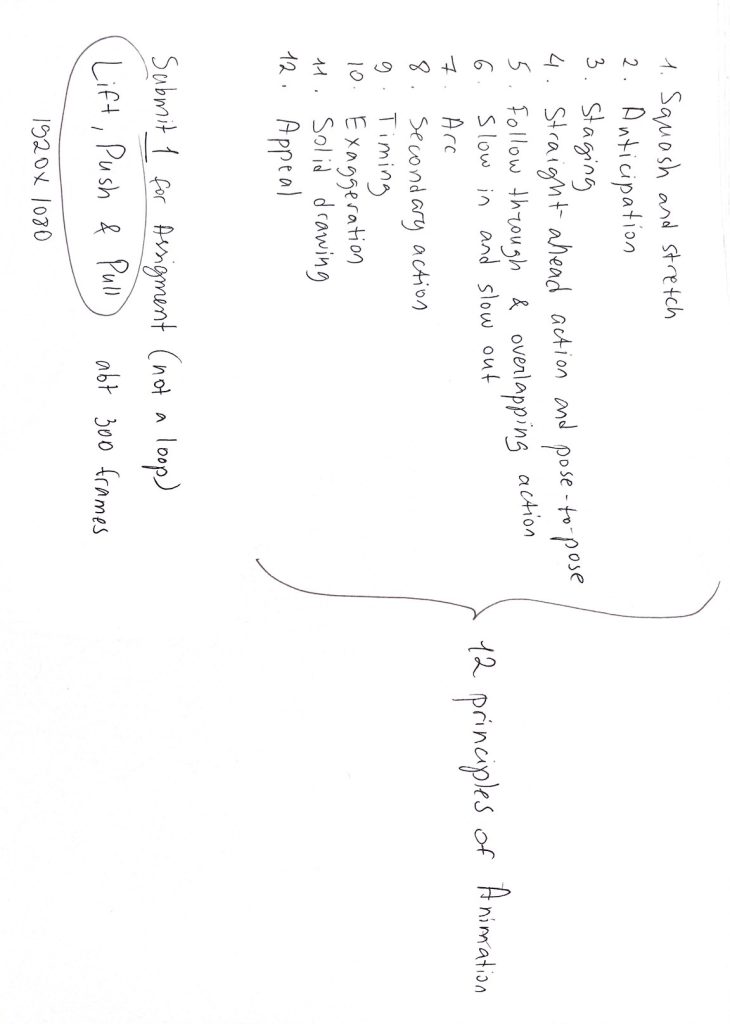 1. Squash and stretch
2. Anticipation
3. Staging
4. Straight-ahead action and pose-to-pose
5. Follow through & overlapping action
6. Slow in and slow out
7. Arc
8. Secondary action
9. Timing
10. Exaggeration
11. Solid drawing
12. Appeal
12 principles of Animation
Submit 1 for Assigment (not a loop)
Lift, Push & Pull abt 300 frames
1920x1080